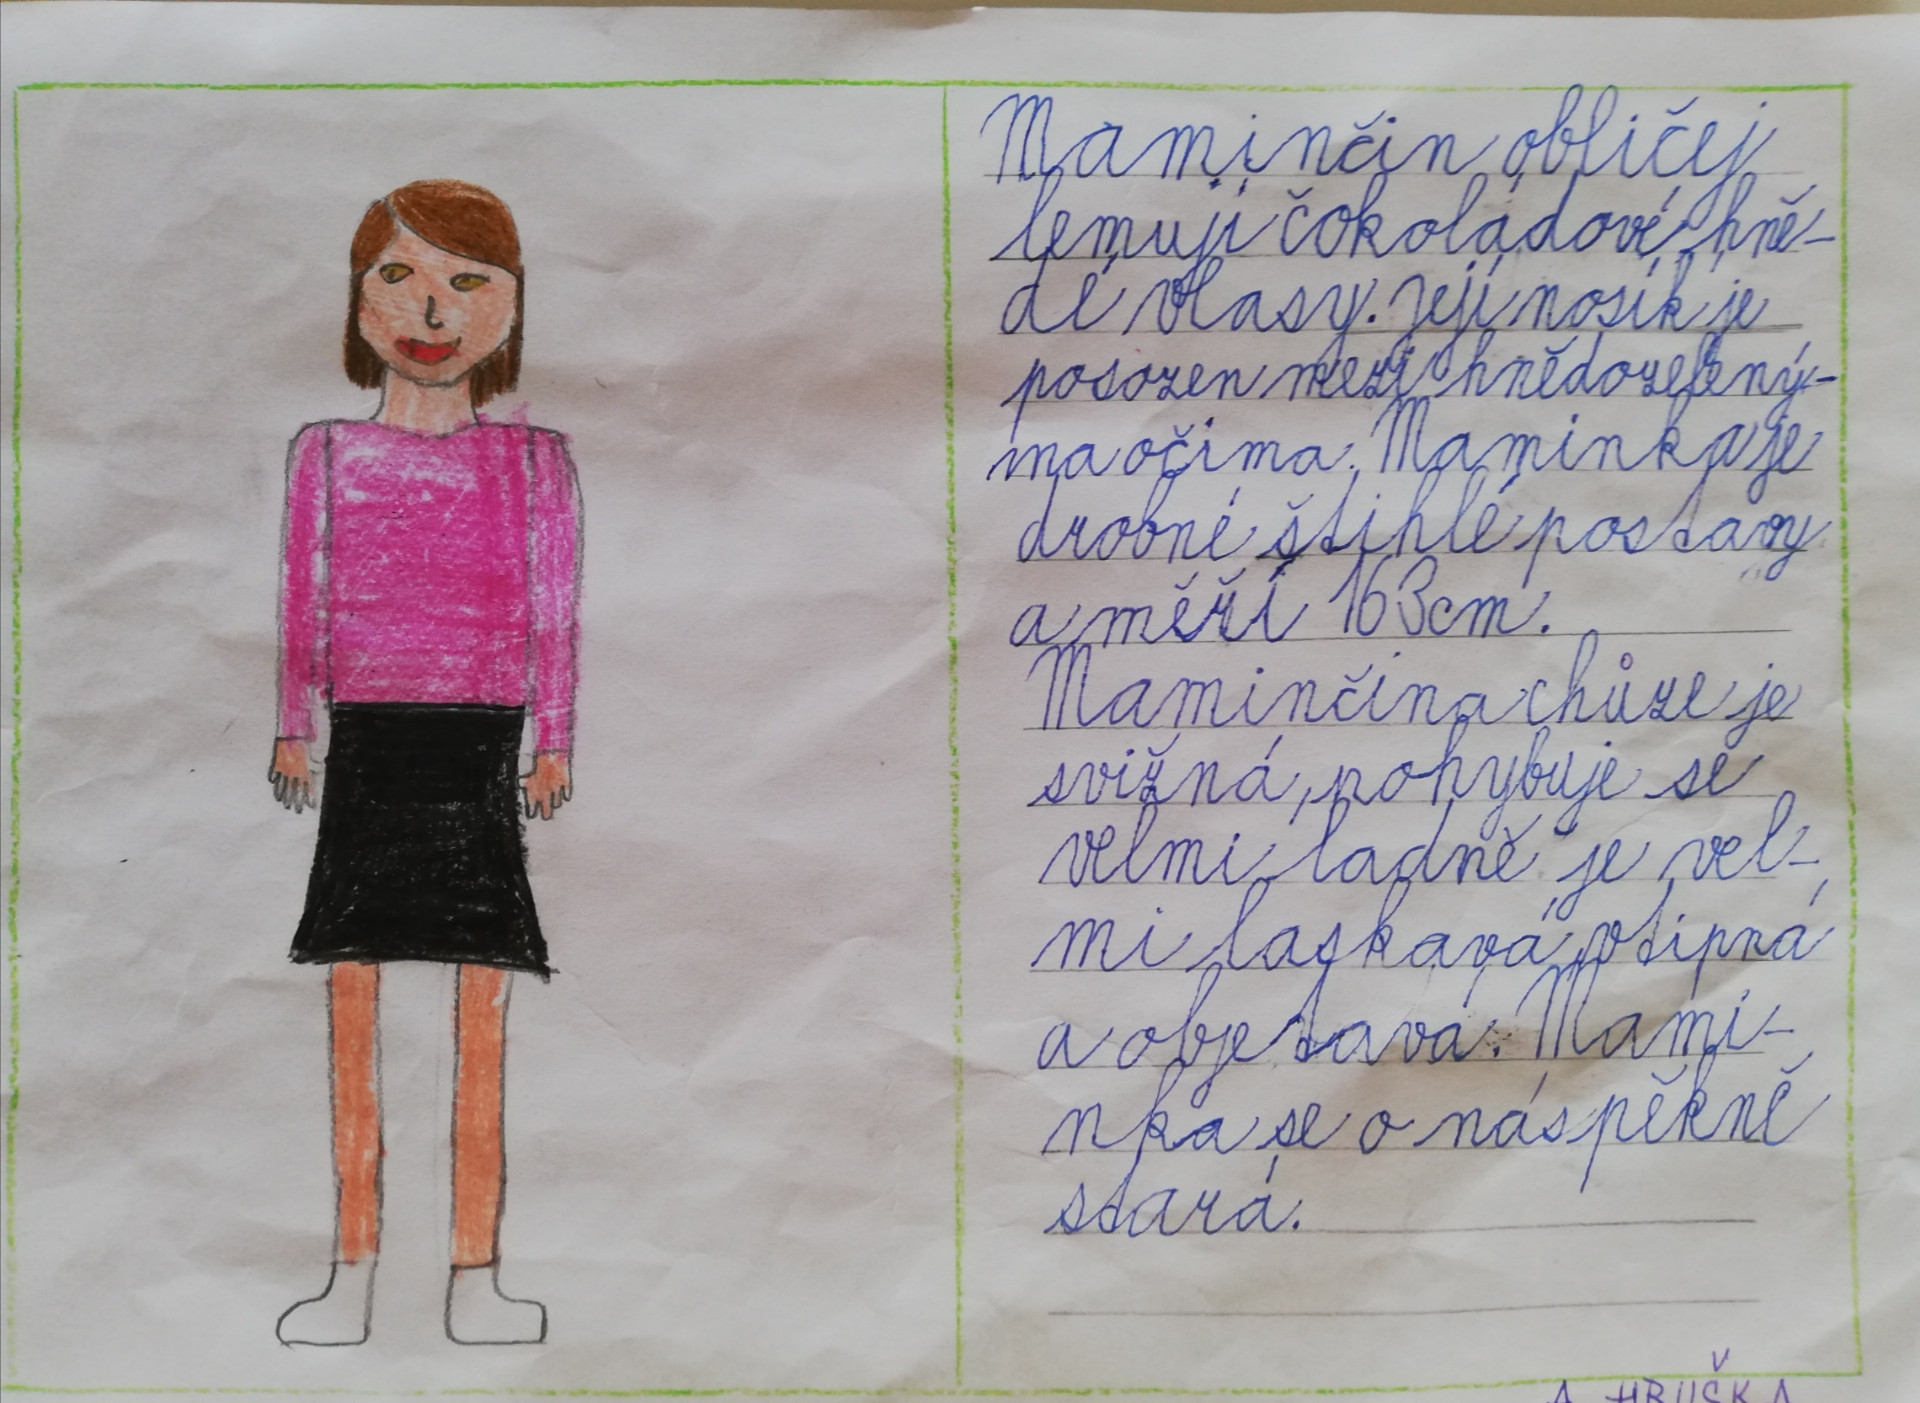 Maminčin obličej
lemují čokoládově hně-
dé vlasy. Její nosík je
posozen mezi hnědozelený-
ma očima. Maminka je
drobné štíhlé postavy
a měří 163cm.
Maminčina chůze je
svižná, pohybuje se
velmi ladně je vel-
mi laskavá, vtipná
a objetavá. Mami-
nka se o nás pěkně
stará.
A HRUŠKA